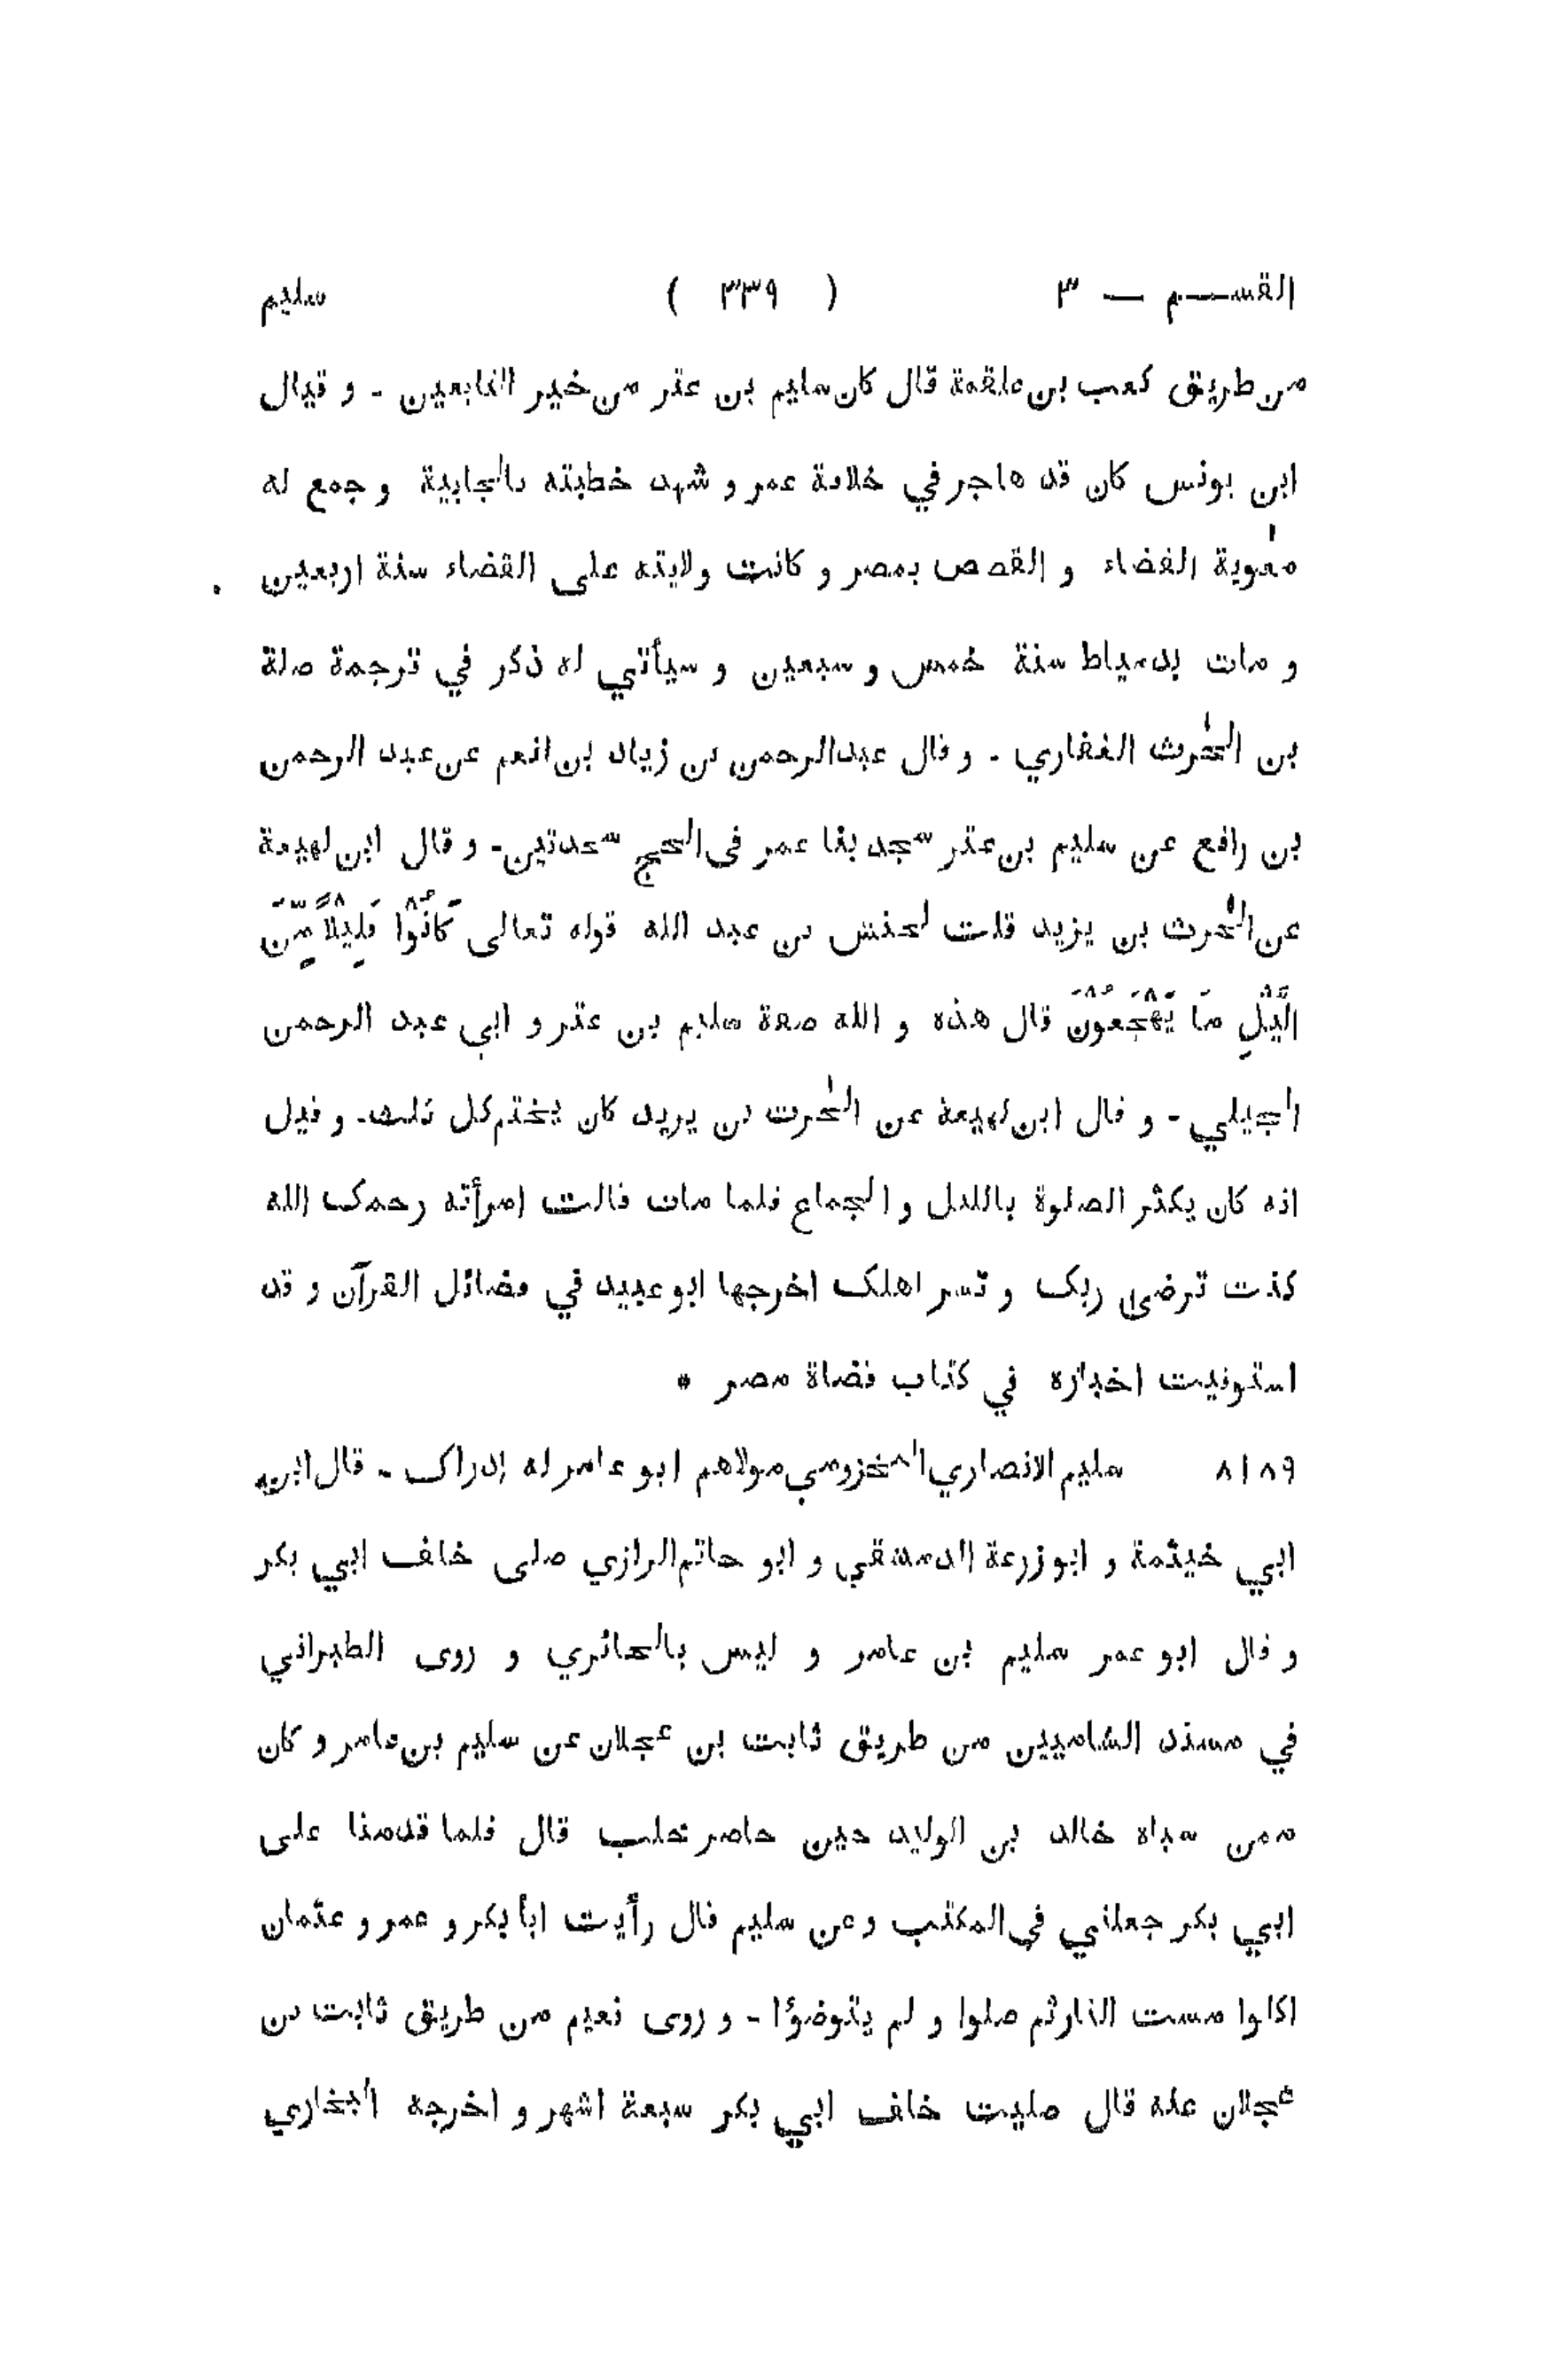 القســـم — ٣ ( ٣٣٩ ) سليم
من طريق كعب بن علقمة قال كان سليم بن عتر من خير التابعين - و قيال
ابن يونس كان قد هاجر في خلافة عمر و شهد خطبته بالجابية و جمع له
معٰوية القضاء و القصص بمصر و كانت ولايته على القضاء سنة اربعين
و مات بدمياط سنة خمس و سبعين و سيأتي له ذكر في ترجمة صلة
بن الحٰرث الغفاري - و قال عبدالرحمن بن زياد بن انعم عن عبد الرحمن
بن رافع عن سليم بن عتر سجد بنا عمر فى الحج سجدتين - و قال ابن لهيعة
عن الحٰرث بن يزيد قلت لحنش بن عبد الله قوله تعالى كَانُوْا قَلِيْلًا مِّنَ
الَّيْلِ مَا يَهْجَعُوْنَ قال هذه و الله صفة سليم بن عتر و ابي عبد الرحمن
الجيلي - و قال ابن لهيعة عن الحٰرث بن يزيد كان يختم كل ثلث - و قيل
انه كان يكثر الصلوة بالليل و الجماع فلما مات قالت امرأته رحمك الله
كنت ترضى ربك و تسر اهلك اخرجها ابو عبيد في فضائل القرآن و قد
استوفيت اخباره في كتاب قضاة مصر *
٨١٨٩ سليم الانصاري المخزومي مولاهم ابو عامر له ادراك - قال ابن
ابي خيثمة و ابو زرعة الدمشقي و ابو حاتم الرازي صلى خلف ابي بكر
و قال ابو عمر سليم بن عامر و ليس بالحائري و روى الطبراني
في مسند الشاميين من طريق ثابت بن عجلان عن سليم بن عامر و كان
ممن سباه خالد بن الوليد حين حاصر حلب قال فلما قدمنا على
ابي بكر جعلني في المكتب و عن سليم قال رأيت ابا بكر و عمر و عثمان
اكلوا مست النار ثم صلوا و لم يتوضؤا - و روى نعيم من طريق ثابت بن
عجلان عنه قال صليت خلف ابي بكر سبعة اشهر و اخرجه البخاري